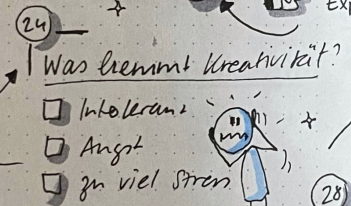 24
Exp
Was hemmt Kreativität?
Intolerant
Angst
zu viel Stress
28